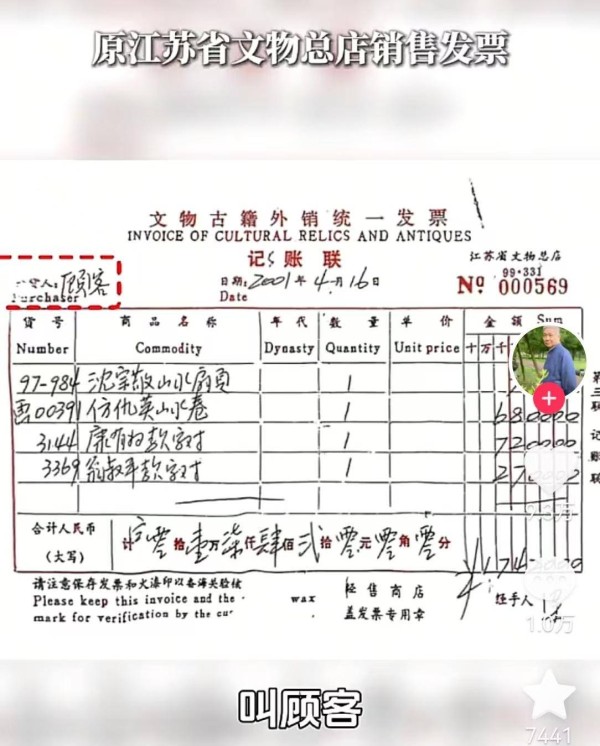 原江苏省文物总店销售发票
文物古籍外销统一发票
INVOICE OF CULTURAL RELICS AND ANTIQUES
记账联
江苏省文物总店
99·331
货人:顾客
Purchaser
日期:2001年4月16
Date
№ 000569
货号 商品名称 年代 数量 单价 金额 Sum
Number Commodity Dynasty Quantity Unit price 十万千
97-984 沈宗敬山水扇页 1
画00391 仿仇英山水卷 1 680000
3144 康有为款字对 1 720000
3369 翁叔平款字对 1
第三联 记账联
合计人民币
(大写)
计 零拾壹万柒仟肆佰贰拾零元零角零分
请注意保存发票和火漆印以备海关验核
Please keep this invoice and the wax
mark for verification by the cu
经售商店
盖发票专用章
经手人
9.3万
1.0万
7441
叫顾客